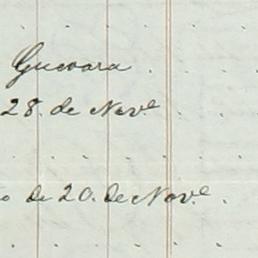 Guevara
28. de Nov.e
o de 20. de Nov.e